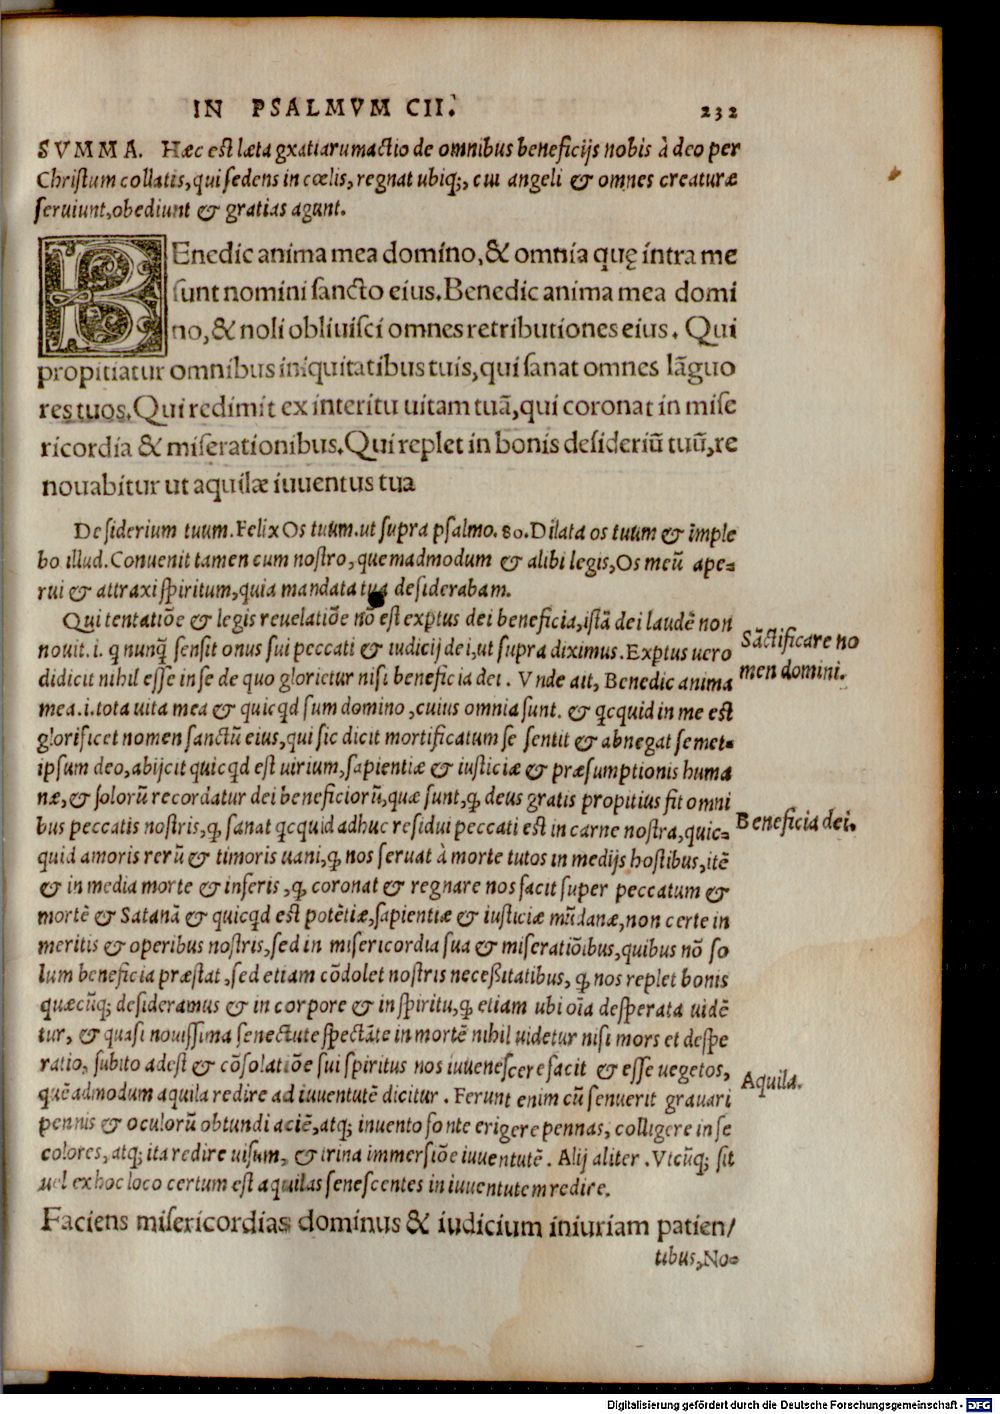 IN PSALMVM CII. 232
SVMMA. Hæc est læta gxatiarumactio de omnibus beneficijs nobis à deo per
Christum collatis, qui sedens in cœlis, regnat ubiq;, cui angeli & omnes creaturæ
seruiunt, obediunt & gratias agunt.
BEnedic anima mea domino, & omnia quę intra me
sunt nomini sancto eius. Benedic anima mea domi
no, & noli obliuisci omnes retributiones eius. Qui
propitiatur omnibus iniquitatibus tuis, qui sanat omnes lãguo
res tuos. Qui redimit ex interitu uitam tuã, qui coronat in mise
ricordia & miserationibus. Qui replet in bonis desideriũ tuũ, re
nouabitur ut aquilæ iuuentus tua
Desiderium tuum. Felix Os tuum. ut supra psalmo. 80. Dilata os tuum & imple
bo illud. Conuenit tamen cum nostro, quemadmodum & alibi legis, Os meũ ape=
rui & attraxi spiritum, quia mandata tua desiderabam.
Qui tentatiõe & legis reuelatiõe nõ est exp̱tus dei beneficia, istã dei laudẽ non
nouit. i. q nunq̃ sensit onus sui peccati & iudicij dei, ut supra diximus. Exp̱tus uero
didicit nihil esse in se de quo glorietur nisi beneficia dei. Vnde ait, Benedic anima
mea. i. tota uita mea & quicqd sum domino, cuius omnia sunt. & qcquid in me est
glorificet nomen sanctũ eius, qui sic dicit mortificatum se sentit & abnegat semet=
ipsum deo, abijcit quicqd est uirium, sapientiæ & iusticiæ & præsumptionis huma
næ, & solorũ recordatur dei beneficiorũ, quæ sunt, ꝙ deus gratis propitius fit omni
bus peccatis nostris, ꝙ sanat qcquid adhuc residui peccati est in carne nostra, quic=
quid amoris rerũ & timoris uani, ꝙ nos seruat à morte tutos in medijs hostibus, itẽ
& in media morte & inferis, ꝙ coronat & regnare nos facit super peccatum &
mortẽ & Satanã & quicqd est potẽtiæ, sapientiæ & iusticiæ mũdanæ, non certe in
meritis & operibus nostris, sed in misericordia sua & miseratiõibus, quibus nõ so
lum beneficia præstat, sed etiam cõdolet nostris neceßitatibus, ꝙ nos replet bonis
quæcũq; desideramus & in corpore & in spiritu, ꝙ etiam ubi oĩa desperata uidẽ
tur, & quasi nouissima senectute spectãte in mortẽ nihil uidetur nisi mors et despe
ratio, subito adest & cõsolatiõe sui spiritus nos iuuenescere facit & esse uegetos,
quẽadmodum aquila redire ad iuuentutẽ dicitur. Ferunt enim cũ senuerit grauari
pennis & oculorũ obtundi aciẽ, atq; inuento fonte erigere pennas, colligere in se
colores, atq; ita redire uisum, & trina immersiõe iuuentutẽ. Alij aliter. Vtcũq; sit
uel ex hoc loco certum est aquilas senescentes in iuuentutem redire.
Faciens misericordias dominus & iudicium iniuriam patien/
tibus, No=
Sãctificare no
men domini.
Beneficia dei.
Aquila.
Digitalisierung gefördert durch die Deutsche Forschungsgemeinschaft - DFG